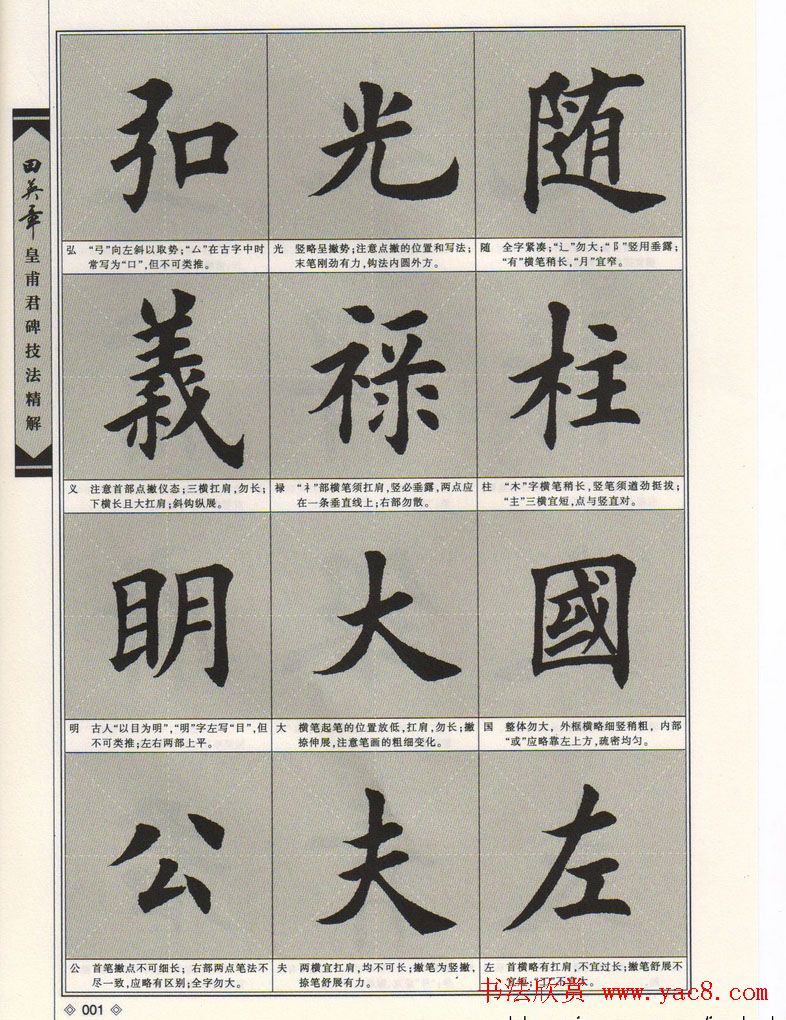 田英章皇甫君碑技法精解
弘
光
随
弘 “弓”向左斜以取势;“厶”在古字中时
常写为“口”,但不可类推。
光 竖略呈撇势;注意点撇的位置和写法;
末笔刚劲有力,钩法内圆外方。
随 全字紧凑;“辶”勿大;“阝”竖用垂露;
“有”横笔稍长,“月”宜窄。
義
禄
柱
义 注意首部点撇仪态;三横扛肩,勿长;
下横长且大扛肩;斜钩纵展。
禄 “礻”部横笔须扛肩,竖必垂露,两点应
在一条垂直线上;右部勿散。
柱 “木”字横笔稍长,竖笔须遒劲挺拔;
“主”三横宜短,点与竖直对。
明
大
國
明 古人“以目为明”,“明”字左写“目”,但
不可类推;左右两部上平。
大 横笔起笔的位置放低,扛肩,勿长;撇
捺伸展,注意笔画的粗细变化。
国 整体勿大,外框横略细竖稍粗,内部
“或”应略靠左上方,疏密均匀。
公
夫
左
公 首笔撇点不可细长;右部两点笔法不
尽一致,应略有区别;全字勿大。
夫 两横宜扛肩,均不可长;撇笔为竖撇,
捺笔舒展有力。
左 首横略有扛肩,不宜过长;撇笔舒展不
书法欣赏 www.yac8.com
001